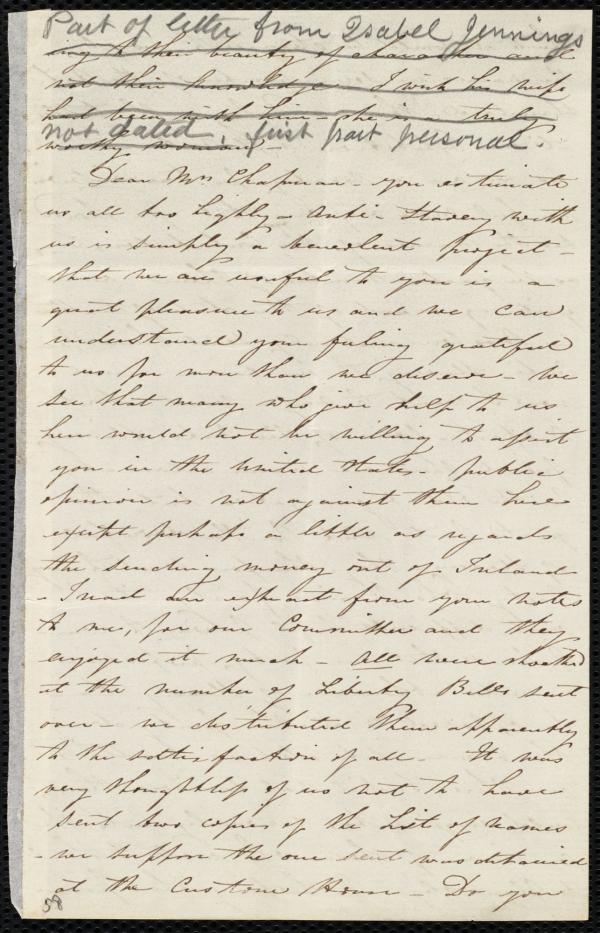 Part of letter from Isabel Jennings
ing to their beauty of character and
not their knowledge - I wish his wife
had been with him - she is a truly
not dated, first part personal.
worthy woman -
Dear Mrs Chapman - you estimate
us all too highly - Anti-Slavery with
us is simply a benevolent project -
that we are useful to you is a
great pleasure to us and we can
understand your feeling grateful
to us for more than we deserve - We
see that many who give help to us
here would not be willing to assist
you in the United States - public
opinion is not against them here
except perhaps a little as regards
the sending money out of Ireland
- I read an extract from your notes
to me, for our Committee and they
enjoyed it much - All were shocked
at the number of Liberty Bells sent
over - we distributed them apparently
to the sattisfaction of all - It was
very thoughtless of us not to have
sent two copies of the List of names
- we suppose the one sent was detained
at the Custom House - Do you
58